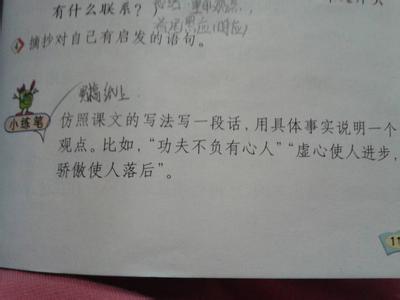 有什么联系？）
摘抄对自己有启发的语句。
小练笔
仿照课文的写法写一段话，用具体事实说明一个
观点。比如，“功夫不负有心人”“虚心使人进步，
骄傲使人落后”。
11